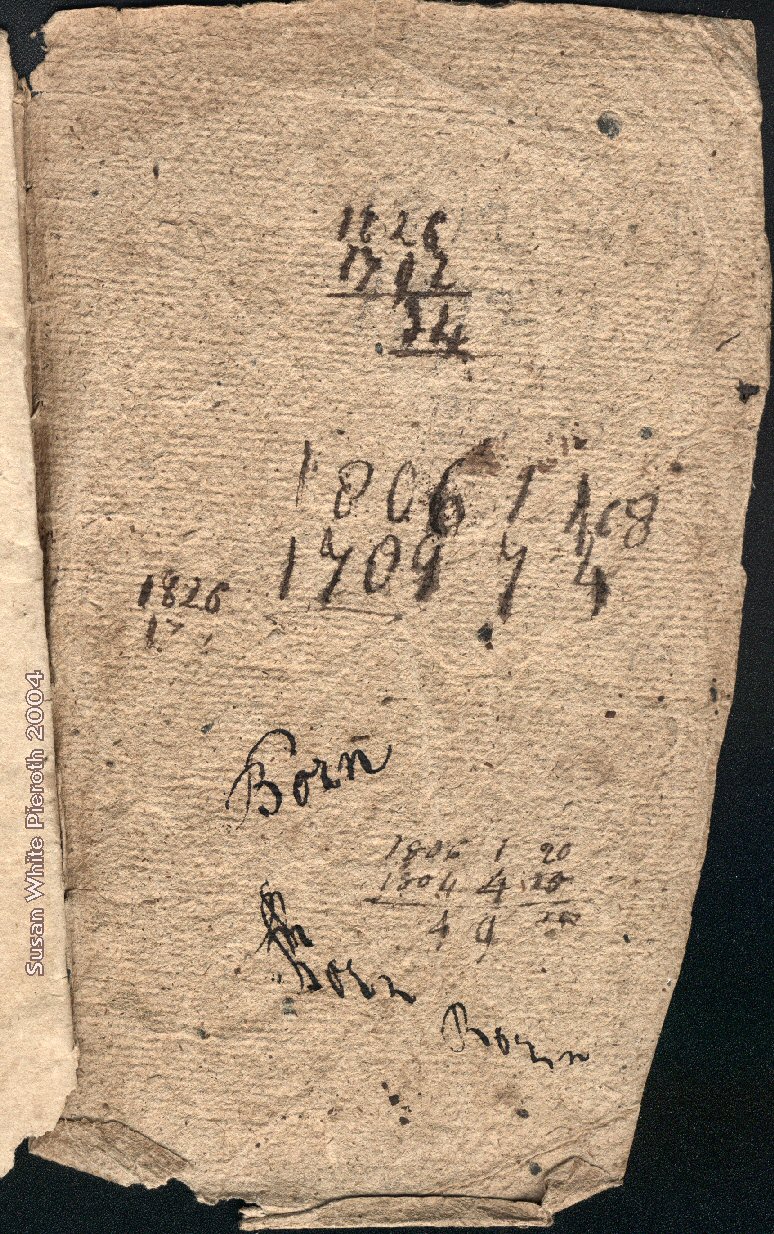 1826
1792
34
1806 1
1709 7 4
1826
17
Born
1806 1 20
1804 4 20
1 9
Born
Born
Susan White Pieroth 2004